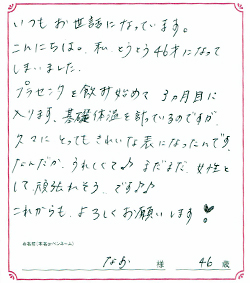 いつもお世話になっています。
こんにちは。私、とうとう46才になって
しまいました。
プラセンタを飲み始めて 3ヵ月目に
入ります。基礎体温を計っているのですが、
久々に とってもきれいな表になったんです。
なんだか、うれしくて♪ まだまだ、女性と
して頑張れそう、です♪♪
これからも、よろしくお願いします!
お名前(本名orペンネーム)
なお 様 46 歳